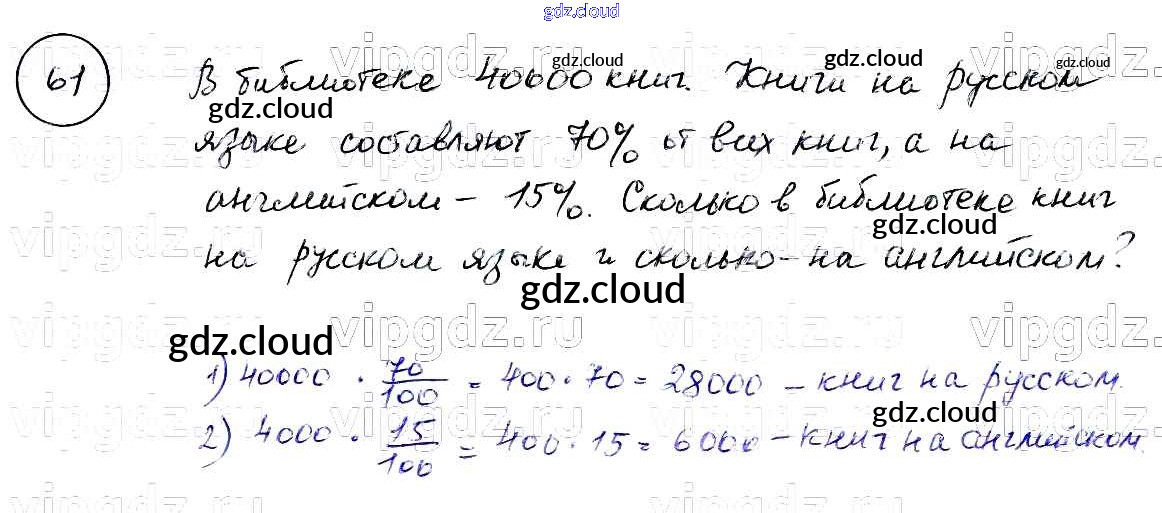 gdz.cloud
61
В библиотеке 40000 книг. Книги на русском
языке составляют 70% от всех книг, а на
английском - 15%. Сколько в библиотеке книг
на русском языке и сколько - на английском?
1) 40000 · 70/100 = 400 · 70 = 28000 - книг на русском.
2) 4000 · 15/100 = 400 · 15 = 6000 - книг на английском.
gdz.cloud
gdz.cloud
gdz.cloud
gdz.cloud
gdz.cloud
gdz.cloud
gdz.cloud
vipgdz.ru
vipgdz.ru
vipgdz.ru
vipgdz.ru